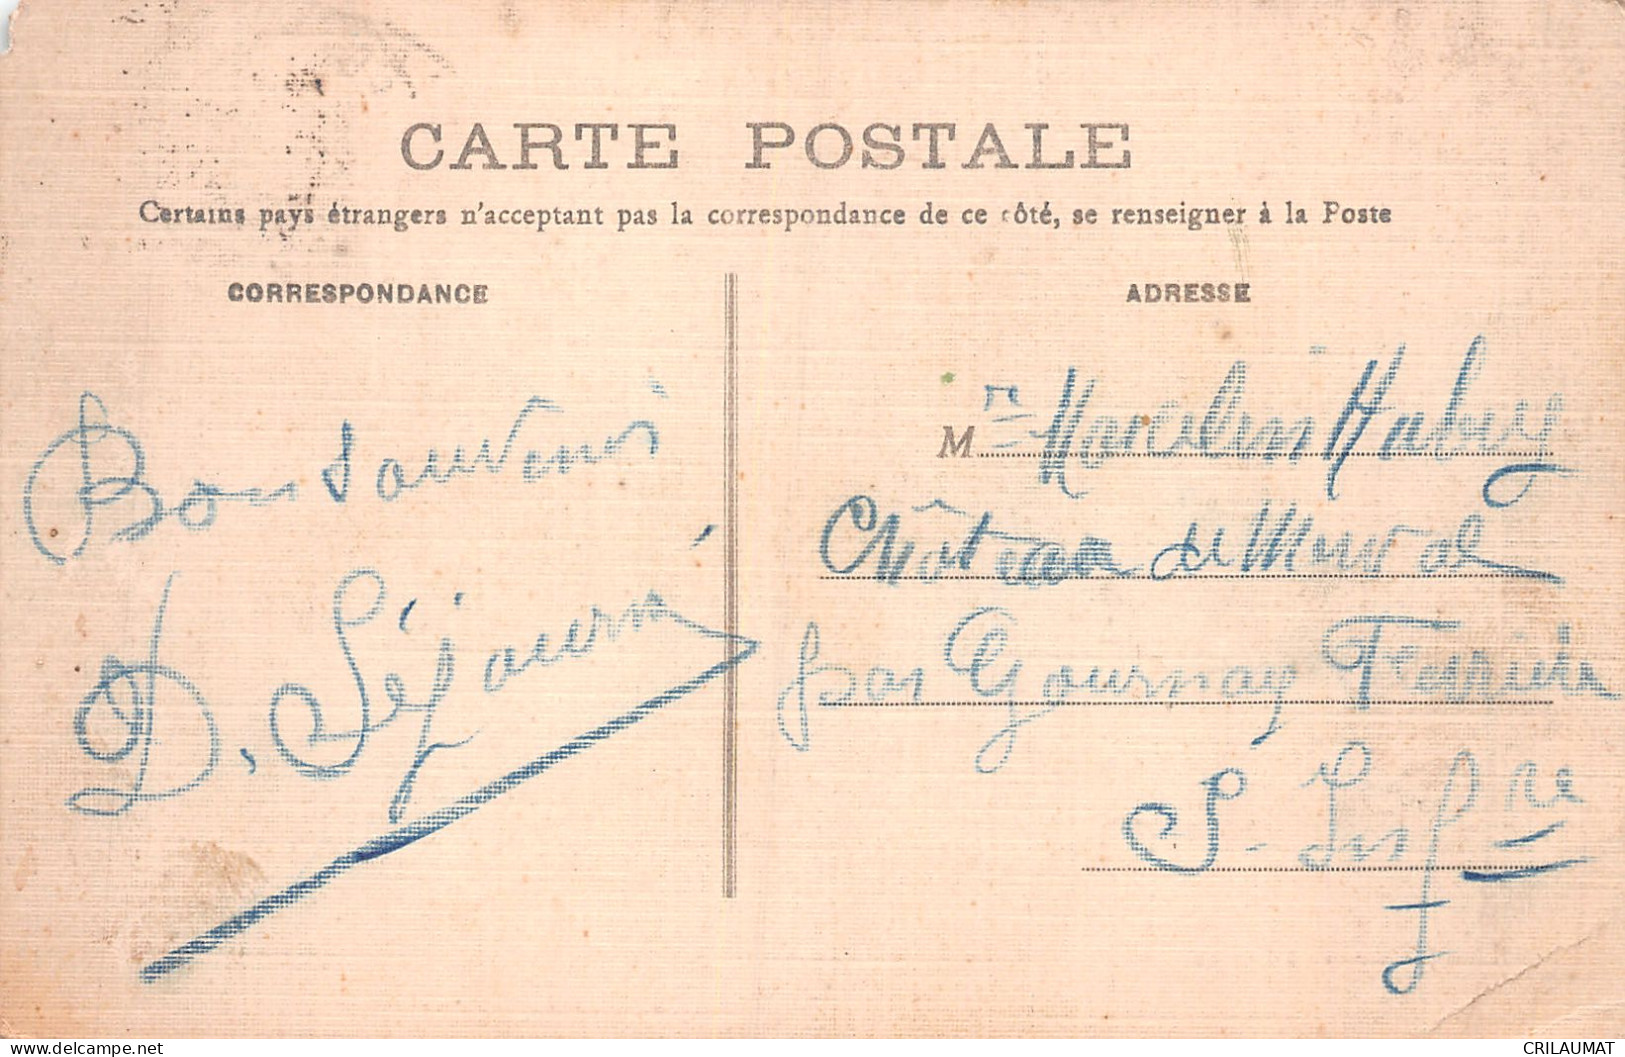 CARTE POSTALE
Certains pays étrangers n'acceptant pas la correspondance de ce côté, se renseigner à la Poste
CORRESPONDANCE
ADRESSE
Bon souvenir
D. Séjourné
M r Marcelin Mabey
Château de Merval
par Gournay Ferrières
S. Infre
CRILAUMAT